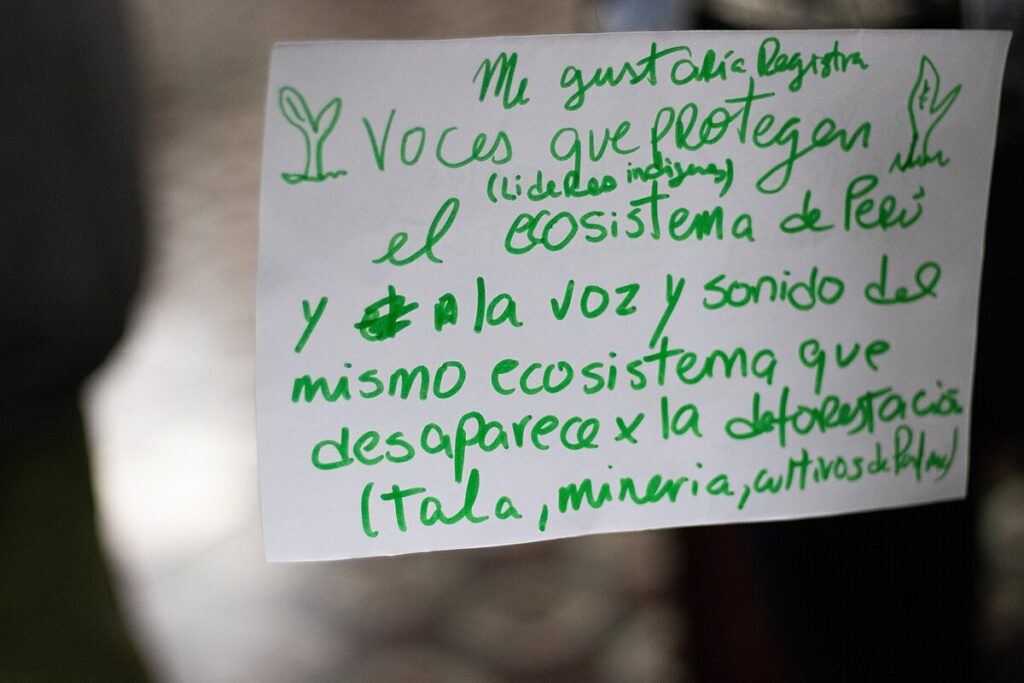 Me gustaría Registra
Voces que protegen
(Lideres indigenas)
el ecosistema de Perú
y la voz y sonido del
mismo ecosistema que
desaparece x la deforestación
(Tala, mineria, cultivos de Palma)